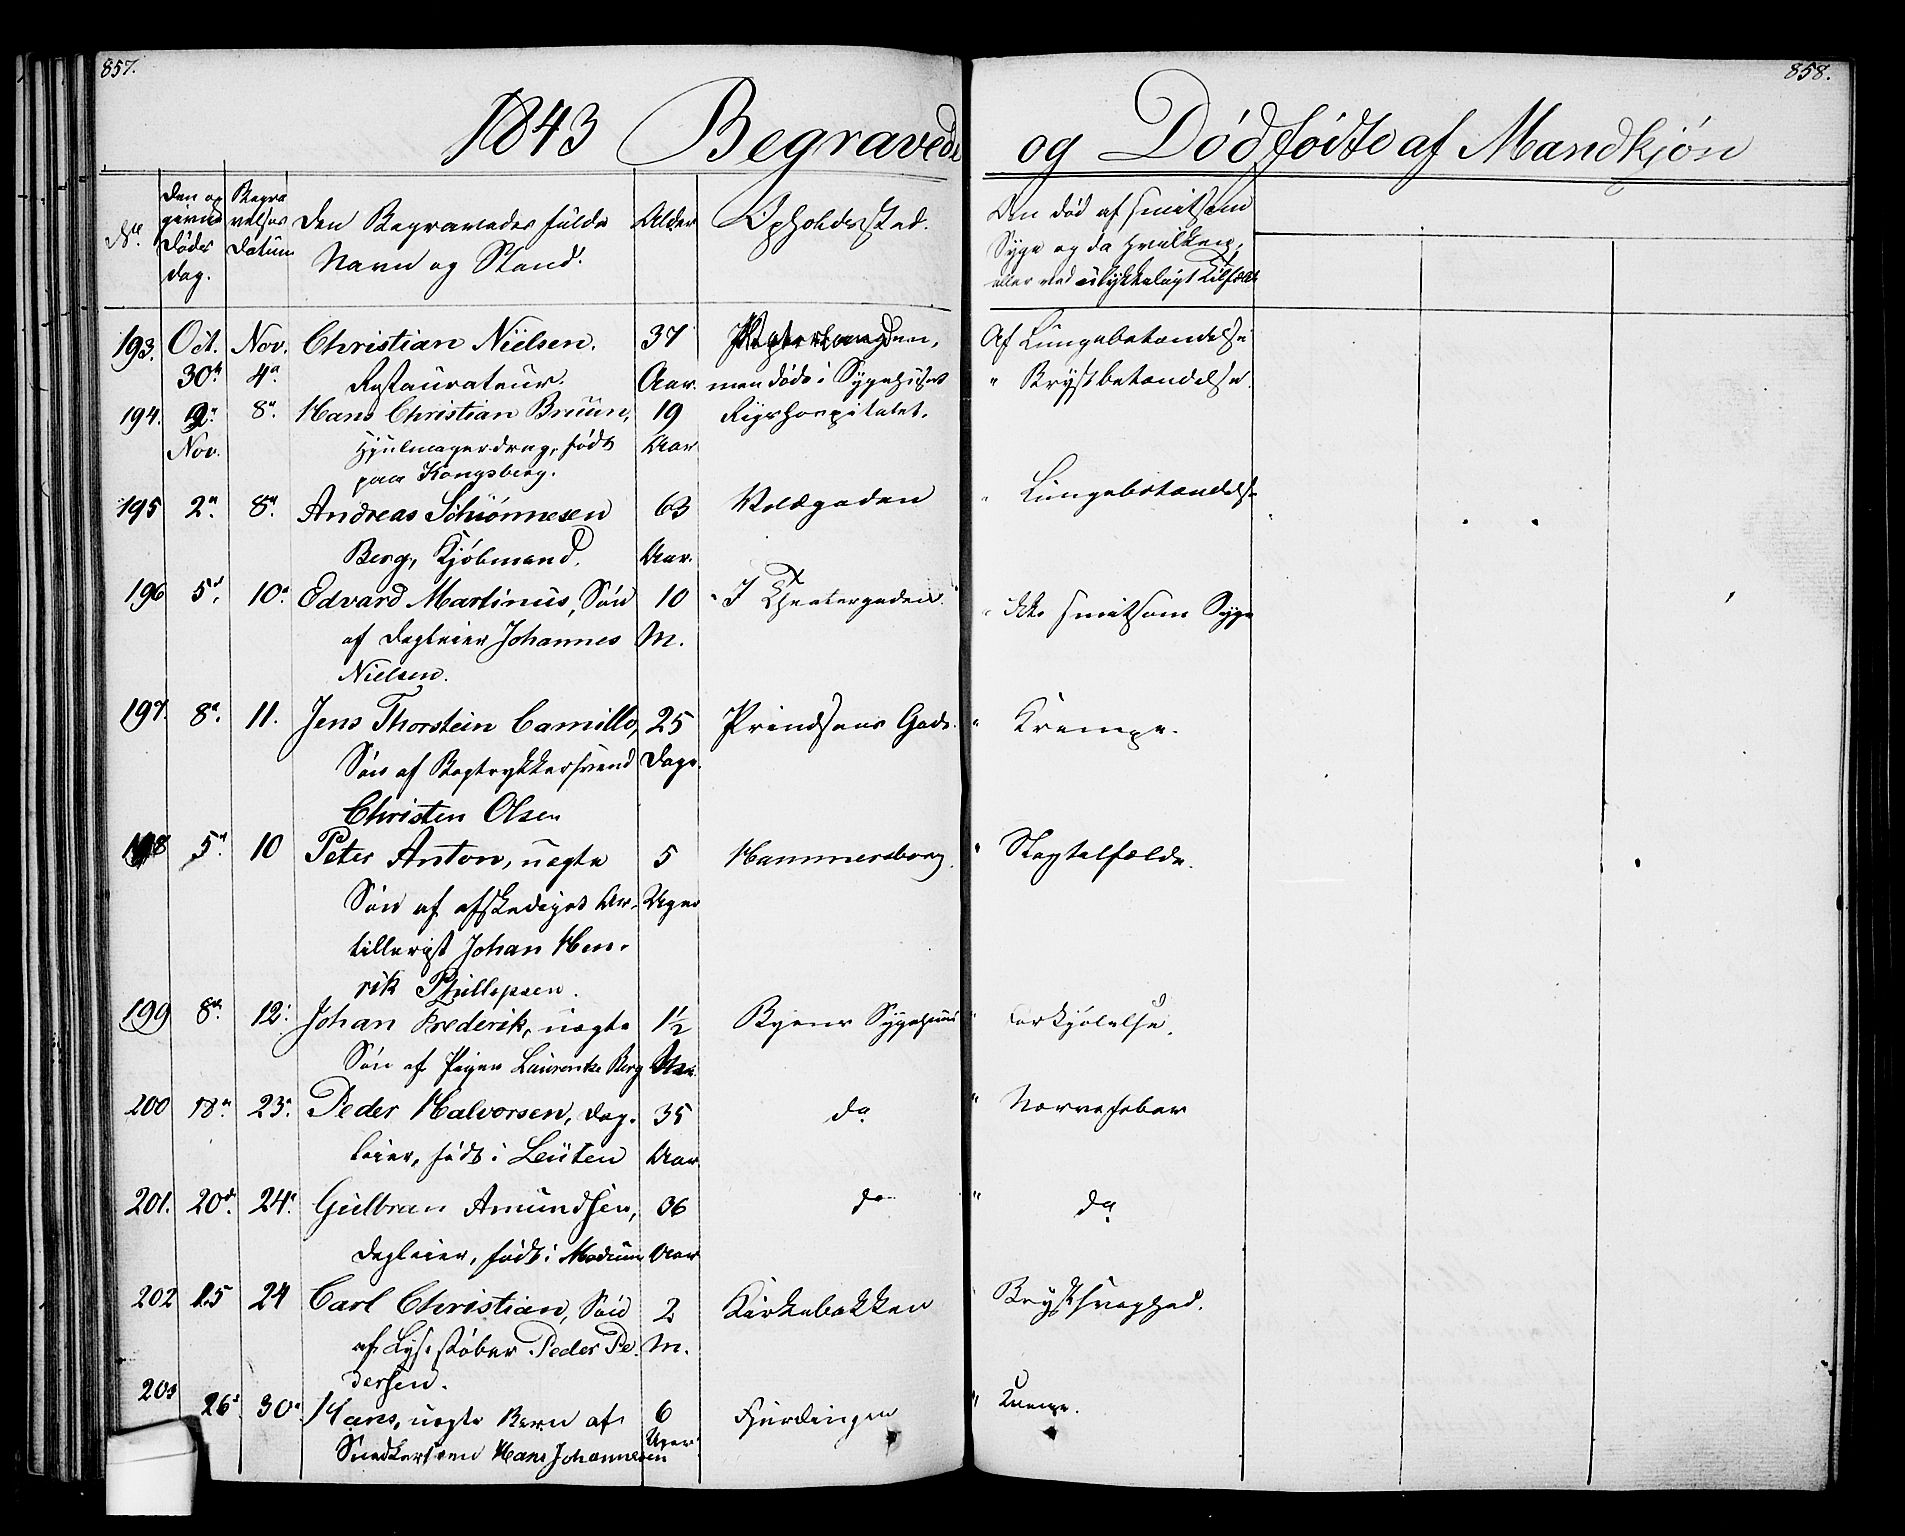 857.
858.
1843 Begravede og Dødfødte af Mandkjøn
No.
Den opgivne Døds dag.
Begravelses Datum
Den Begravedes fulde Navn og Stand.
Alder
Opholdssted.
Om død af smitsom Syge og da hvilken, eller ved ulykkeligt Tilfælde
193. Oct. Nov. Christian Nielsen. 37 Af Lungebetændelse
30te 4de Restaurateur. Aar. men døde i Sygehuset " Brystbetændelse.
194. 8de Hans Christian Bruun, 19 Rigshospitalet.
Nov. Hjulmagerdreng, født Aar
paa Kongsberg.
195 2den 8de Andreas Schiønnesen 63 Voldgaden " Lungebetændelse
Berg, Kjøbmand. Aar.
196 5te 10de Edvard Martinus, Søn 10 I Theatergaden. " ikke smitsom Syge
af Dagleier Johannes M.
Nielsen.
197. 8de 11. Jens Thorstein Camillo, 25 Prindsens Gade. " Krampe.
Søn af Bogtrykkersvend Dage.
Christen Olsen
198 5te 10 Peter Anton, uægte 5 Hammersborg. " Slagtilfælde.
Søn af afskediget Ar- Uger
tillerist Johan Hen-
rik Phillipsen.
199 8de 12. Johan Frederik, uægte 1½ Byens Sygehuus " Forkjølelse.
Søn af Pigen Laurentse Berg
200 18de 23de Peder Halvorsen, Dag- 35 do " Nervefeber
leier, født i Løiten Aar.
201. 20de 24de Gulbran Amundsen, 36 do " do
Dagleier, født i Modum Aar
202 15 24 Carl Christian, Søn 2 Kirkebakken Brystsvaghed.
af Lysestøber Peder Pe- M.
dersen.
203 26de 30te Hans, uægte Barn af 6 Fjerdingen " Krampe.
Snedkersven Hans Johannesen Uger